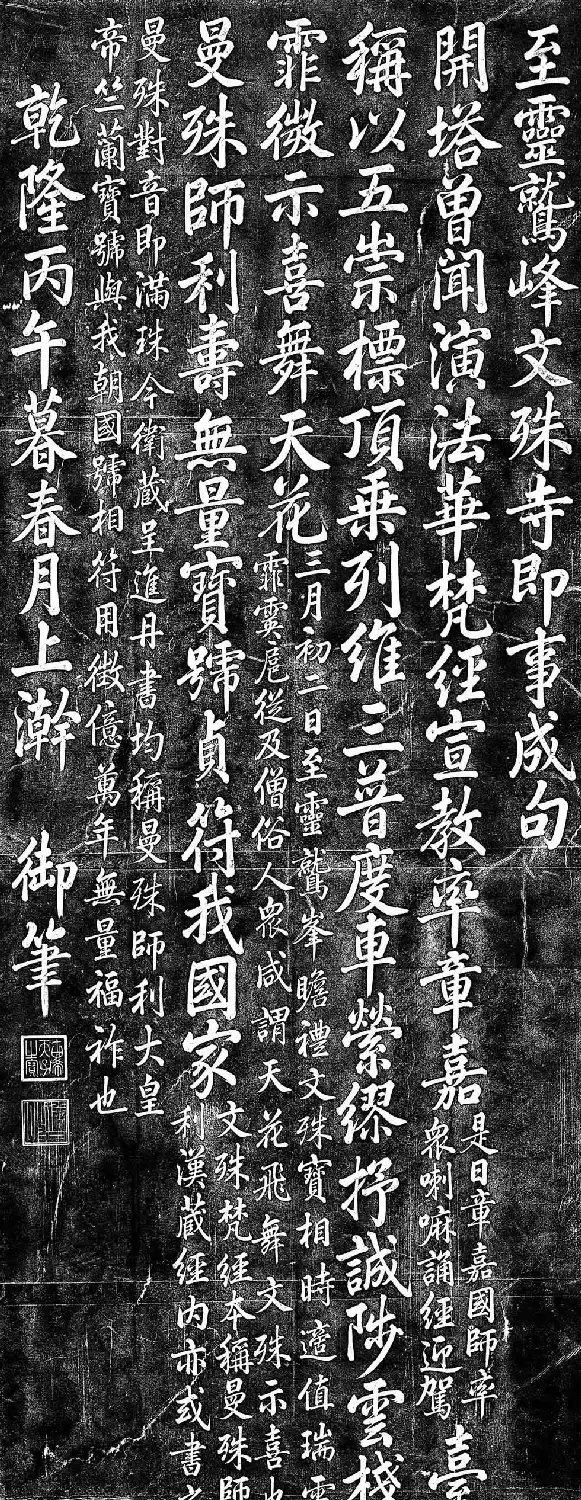 至靈鷲峰文殊寺即事成句
開塔曾聞演法華梵經宣教率章嘉
是日章嘉國師率
眾喇嘛誦經迎駕
臺
稱以五崇標頂乘列維三普度車縈繆抒誠陟雲棧
霏微示喜舞天花
三月初二日至靈鷲峯瞻禮文殊寶相時適值瑞雪
霏霙扈從及僧俗人眾咸謂天花飛舞文殊示喜也
曼殊師利壽無量寶號貞符我國家
文殊梵經本稱曼殊師
利漢藏經內亦或書之
曼殊對音即滿珠今衛藏呈進丹書均稱曼殊師利大皇
帝竺蘭寶號與我朝國號相符用徵億萬年無量福祚也
乾隆丙午暮春月上澣 御筆